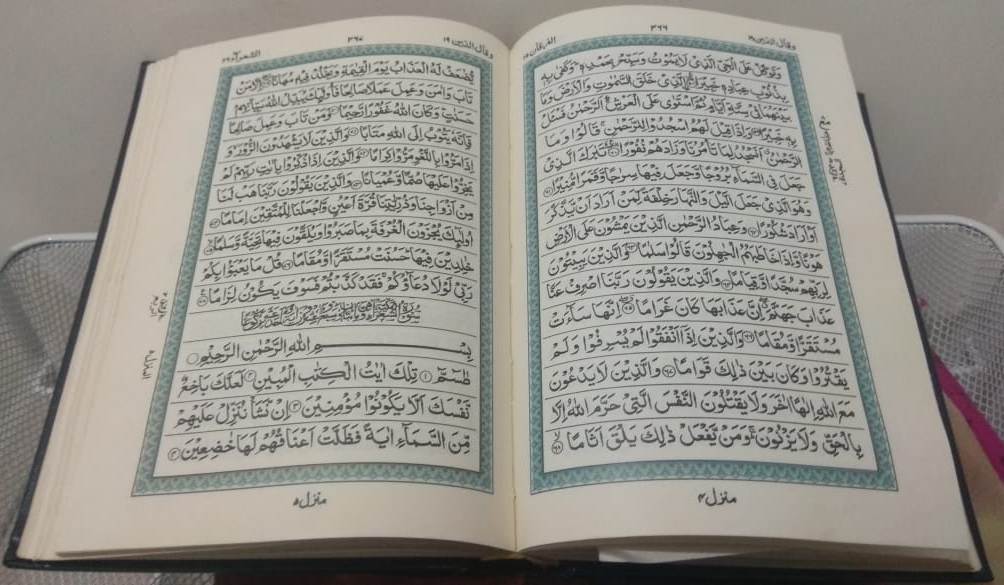 وقال الذین ۱۹
۳۶۶
الفرقان ۲۵
وَتَوَكَّلْ عَلَى الْحَيِّ الَّذِي لَا يَمُوتُ وَسَبِّحْ بِحَمْدِهٖ وَكَفٰى بِهٖ
بِذُنُوْبِ عِبَادِهٖ خَبِيْرًا ۟ الَّذِيْ خَلَقَ السَّمٰوٰتِ وَالْاَرْضَ وَمَا
بَيْنَهُمَا فِيْ سِتَّةِ اَيَّامٍ ثُمَّ اسْتَوٰى عَلَى الْعَرْشِ اَلرَّحْمٰنُ فَسْئَلْ
بِهٖ خَبِيْرًا ۵۹ وَاِذَا قِيْلَ لَهُمُ اسْجُدُوْا لِلرَّحْمٰنِ قَالُوْا وَمَا
الرَّحْمٰنُ اَنَسْجُدُ لِمَا تَاْمُرُنَا وَزَادَهُمْ نُفُوْرًا ۶۰ تَبٰرَكَ الَّذِيْ
جَعَلَ فِي السَّمَآءِ بُرُوْجًا وَّجَعَلَ فِيْهَا سِرٰجًا وَّقَمَرًا مُّنِيْرًا ۶۱
وَهُوَ الَّذِيْ جَعَلَ الَّيْلَ وَالنَّهَارَ خِلْفَةً لِّمَنْ اَرَادَ اَنْ يَّذَّكَّرَ
اَوْ اَرَادَ شُكُوْرًا ۶۲ وَعِبَادُ الرَّحْمٰنِ الَّذِيْنَ يَمْشُوْنَ عَلَى الْاَرْضِ
هَوْنًا وَّاِذَا خَاطَبَهُمُ الْجٰهِلُوْنَ قَالُوْا سَلٰمًا ۶۳ وَالَّذِيْنَ يَبِيْتُوْنَ
لِرَبِّهِمْ سُجَّدًا وَّقِيَامًا ۶۴ وَالَّذِيْنَ يَقُوْلُوْنَ رَبَّنَا اصْرِفْ عَنَّا
عَذَابَ جَهَنَّمَ اِنَّ عَذَابَهَا كَانَ غَرَامًا ۶۵ اِنَّهَا سَآءَتْ
مُسْتَقَرًّا وَّمُقَامًا ۶۶ وَالَّذِيْنَ اِذَآ اَنْفَقُوْا لَمْ يُسْرِفُوْا وَلَمْ
يَقْتُرُوْا وَكَانَ بَيْنَ ذٰلِكَ قَوَامًا ۶۷ وَالَّذِيْنَ لَا يَدْعُوْنَ
مَعَ اللّٰهِ اِلٰهًا اٰخَرَ وَلَا يَقْتُلُوْنَ النَّفْسَ الَّتِيْ حَرَّمَ اللّٰهُ اِلَّا
بِالْحَقِّ وَلَا يَزْنُوْنَ وَمَنْ يَّفْعَلْ ذٰلِكَ يَلْقَ اَثَامًا ۶۸
منزل ۴
وقال الذین ۱۹
۳۶۷
الشعرآء ۲۶
يُّضٰعَفْ لَهُ الْعَذَابُ يَوْمَ الْقِيٰمَةِ وَيَخْلُدْ فِيْهٖ مُهَانًا ۶۹ اِلَّا مَنْ
تَابَ وَاٰمَنَ وَعَمِلَ عَمَلًا صَالِحًا فَاُولٰٓئِكَ يُبَدِّلُ اللّٰهُ سَيِّاٰتِهِمْ
حَسَنٰتٍ وَكَانَ اللّٰهُ غَفُوْرًا رَّحِيْمًا ۷۰ وَمَنْ تَابَ وَعَمِلَ صَالِحًا
فَاِنَّهٗ يَتُوْبُ اِلَى اللّٰهِ مَتَابًا ۷۱ وَالَّذِيْنَ لَا يَشْهَدُوْنَ الزُّوْرَ وَ
اِذَا مَرُّوْا بِاللَّغْوِ مَرُّوْا كِرَامًا ۷۲ وَالَّذِيْنَ اِذَا ذُكِّرُوْا بِاٰيٰتِ رَبِّهِمْ لَمْ
يَخِرُّوْا عَلَيْهَا صُمًّا وَّعُمْيَانًا ۷۳ وَالَّذِيْنَ يَقُوْلُوْنَ رَبَّنَا هَبْ لَنَا
مِنْ اَزْوَاجِنَا وَذُرِّيّٰتِنَا قُرَّةَ اَعْيُنٍ وَّاجْعَلْنَا لِلْمُتَّقِيْنَ اِمَامًا ۷۴
اُولٰٓئِكَ يُجْزَوْنَ الْغُرْفَةَ بِمَا صَبَرُوْا وَيُلَقَّوْنَ فِيْهَا تَحِيَّةً وَّسَلٰمًا ۷۵
خٰلِدِيْنَ فِيْهَا حَسُنَتْ مُسْتَقَرًّا وَّمُقَامًا ۷۶ قُلْ مَا يَعْبَؤُا بِكُمْ
رَبِّيْ لَوْلَا دُعَآؤُكُمْ فَقَدْ كَذَّبْتُمْ فَسَوْفَ يَكُوْنُ لِزَامًا ۷۷
بِسْمِ اللّٰهِ الرَّحْمٰنِ الرَّحِيْمِ
طٰسٓمّٓ ۱ تِلْكَ اٰيٰتُ الْكِتٰبِ الْمُبِيْنِ ۲ لَعَلَّكَ بَاخِعٌ
نَّفْسَكَ اَلَّا يَكُوْنُوْا مُؤْمِنِيْنَ ۳ اِنْ نَّشَاْ نُنَزِّلْ عَلَيْهِمْ
مِّنَ السَّمَآءِ اٰيَةً فَظَلَّتْ اَعْنَاقُهُمْ لَهَا خٰضِعِيْنَ ۴
منزل ۵